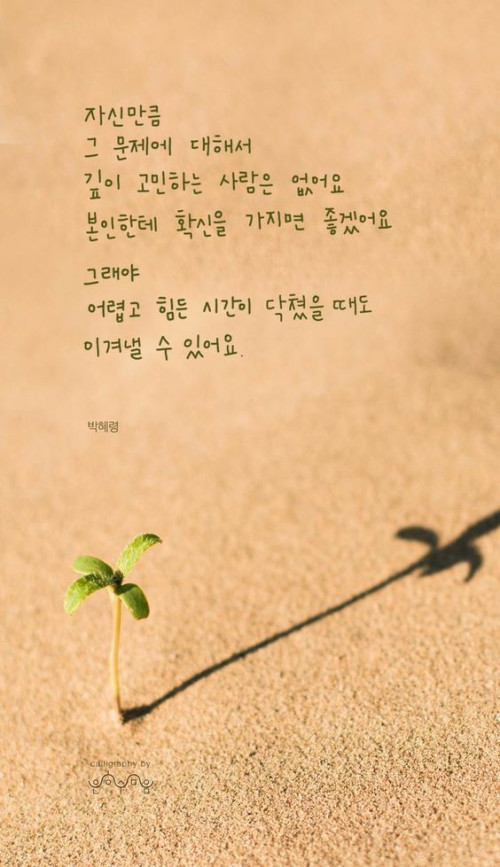 자신만큼
그 문제에 대해서
깊이 고민하는 사람은 없어요
본인한테 확신을 가지면 좋겠어요
그래야
어렵고 힘든 시간이 닥쳤을 때도
이겨낼 수 있어요.
박혜령
calligraphy by